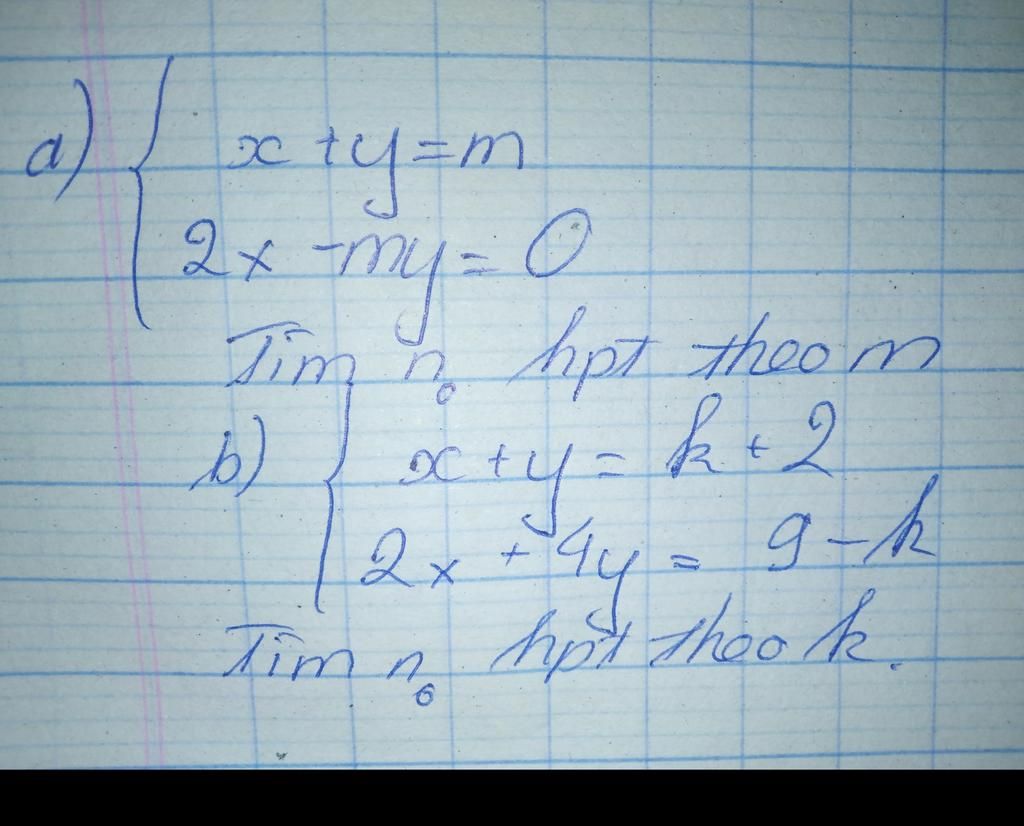 a) { x + y = m
2x - my = 0
Tìm n₀ hpt theo m
b) { x + y = k + 2
2x + 4y = 9 - k
Tìm n₀ hpt theo k.